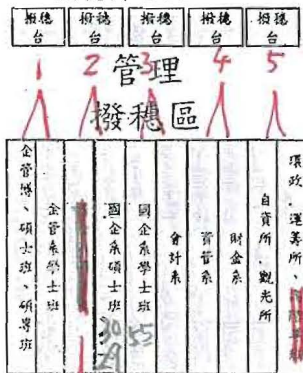 撥穗台 撥穗台 撥穗台 撥穗台 撥穗台
1 2 3 4 5
管理
撥穗區
企管博、碩士班、碩專班
企管系學士班
國企系碩士班
30
29
國企系學士班
55
會計系
資管系
財金系
自資所、觀光所
環政、運美所